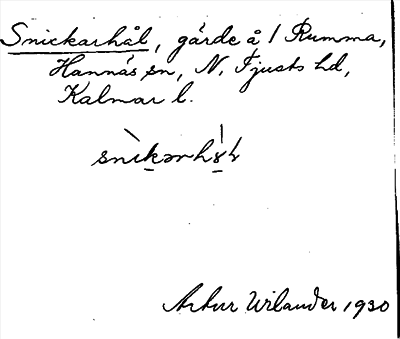 Snickarhål, gärde å 1 Rumma,
Hannäs sn, N. Tjusts hd,
Kalmar l.
Artur Wilander 1930